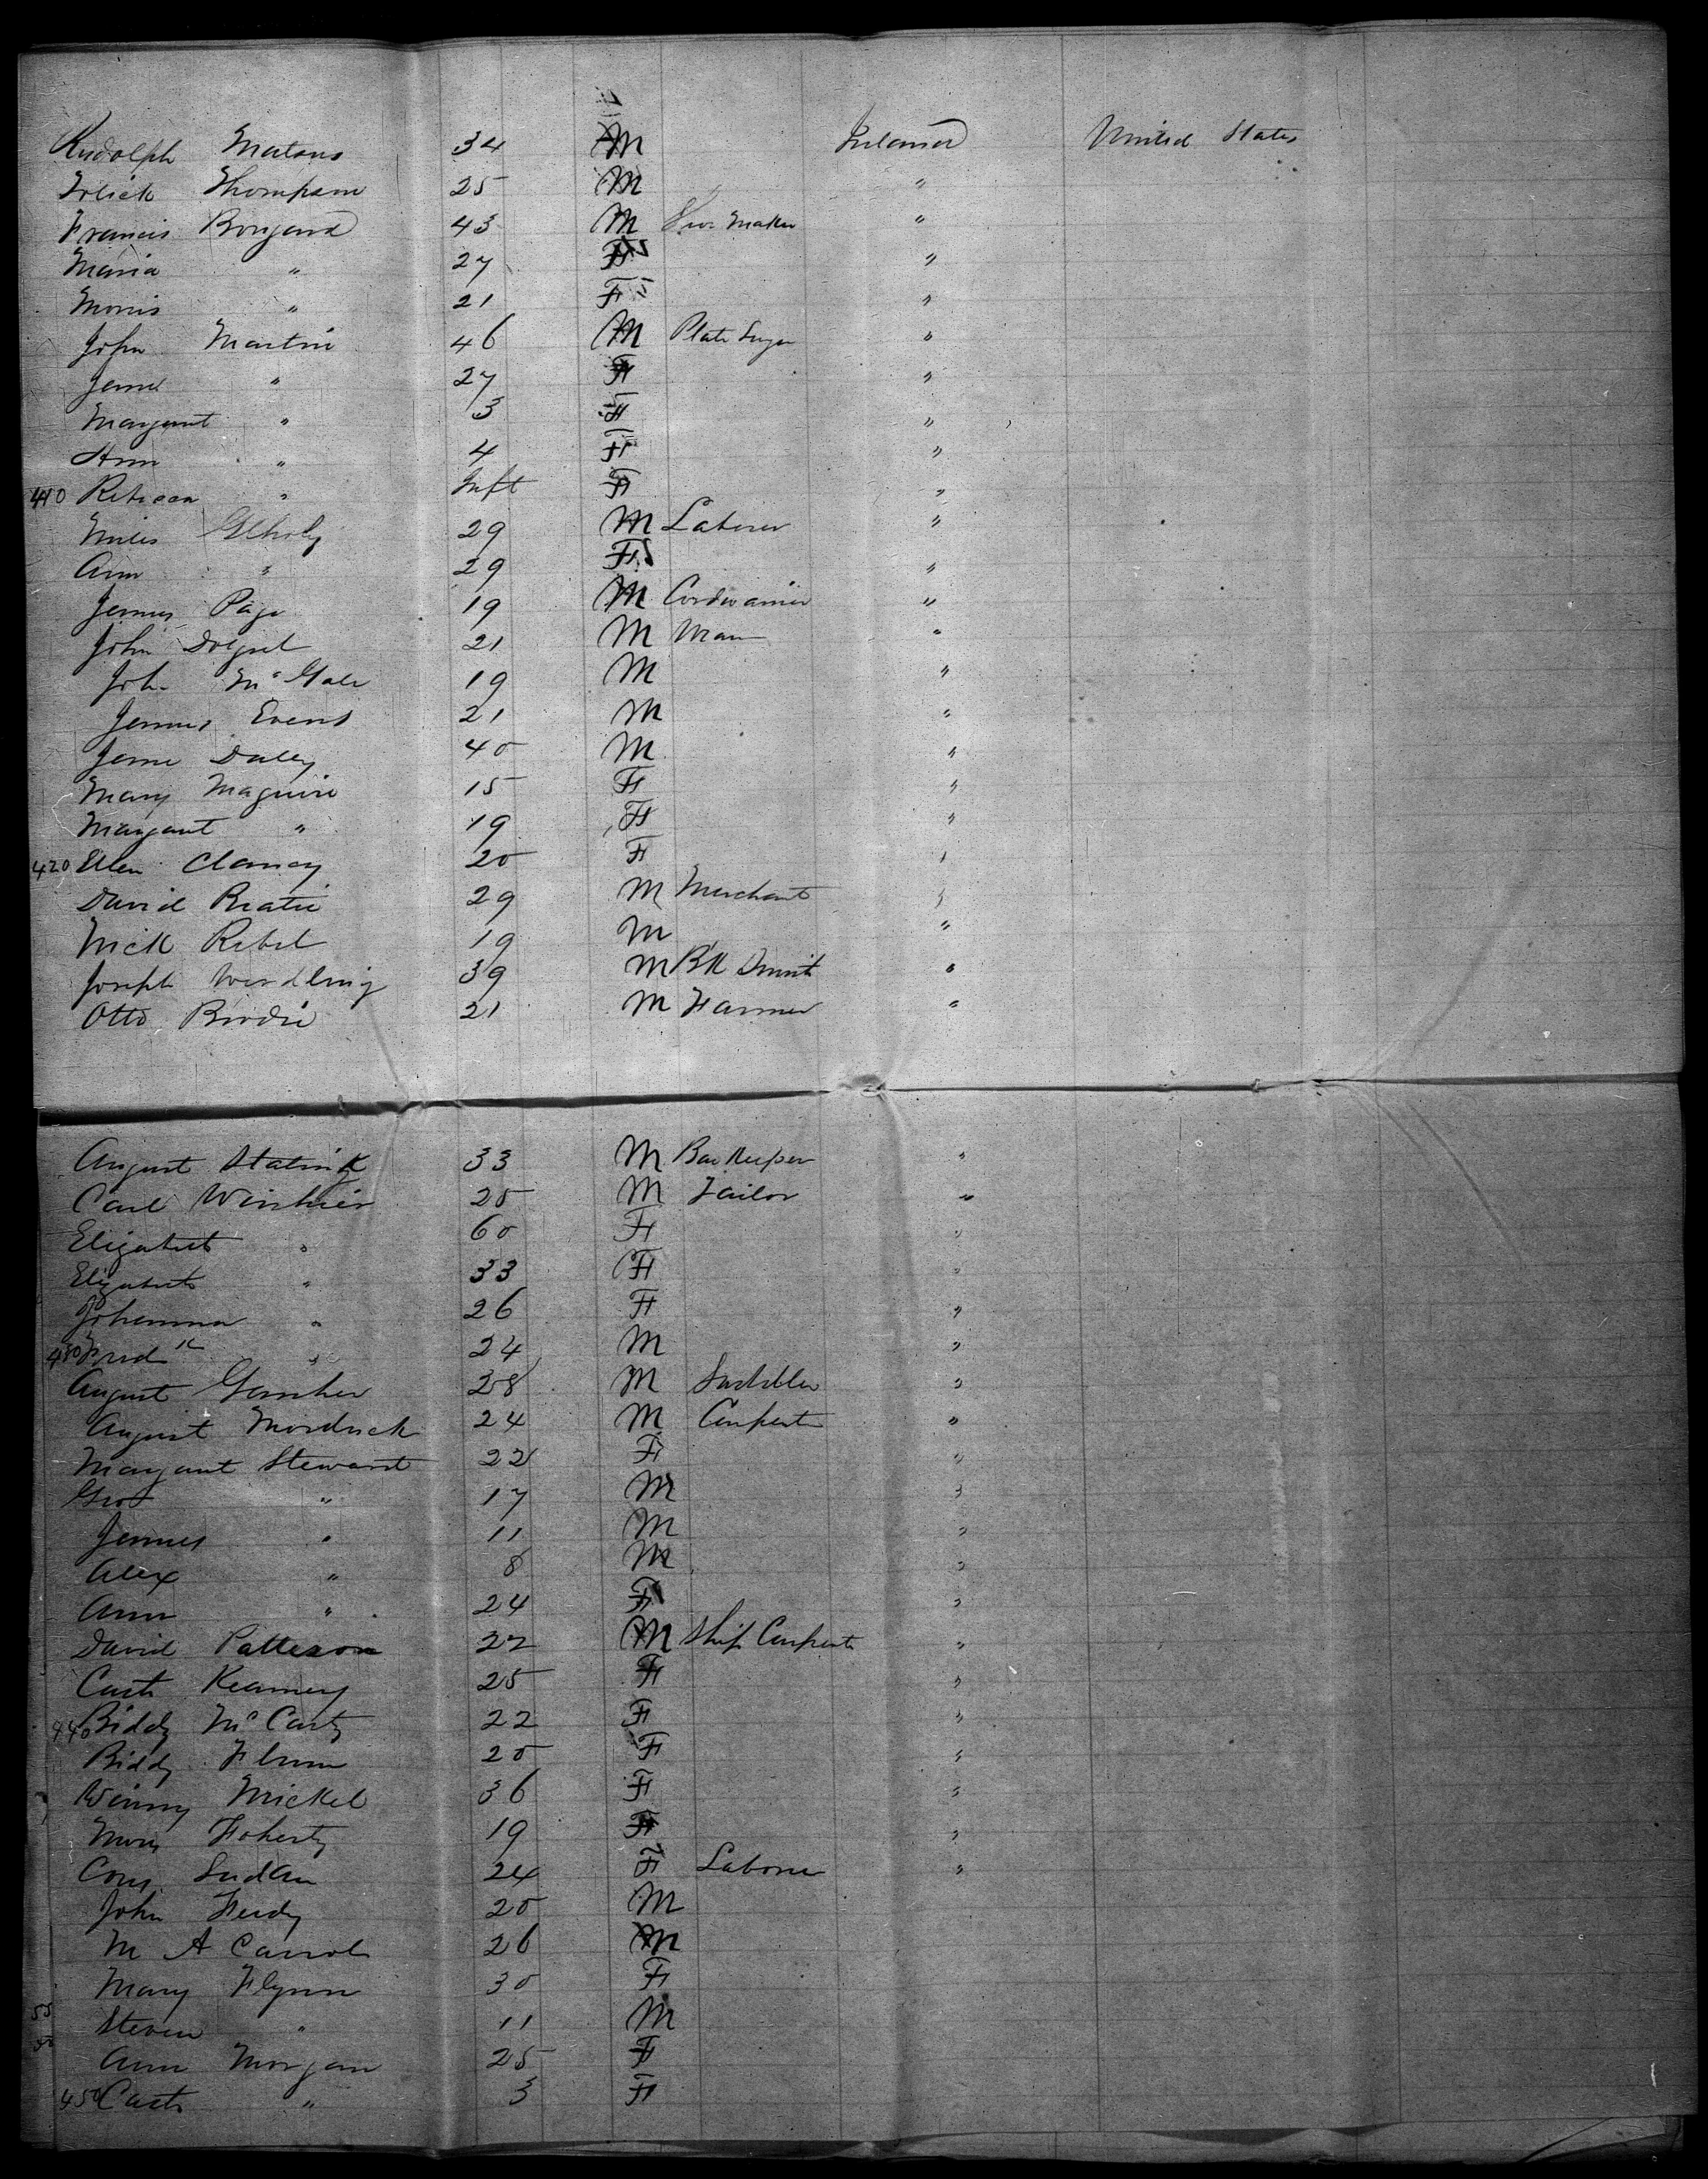 Rudolph 34 M Ireland United States
Thompson 25 M "
Francis Bongard 43 M Shoe Maker "
Maria " 27 F "
Morris " 21 F "
John Martin 46 M Plate "
Jane " 27 F "
Margaret " 3 F "
Ann " 4 F "
410 Rebecca " Inft F "
Miles 29 M Laborer "
Ann " 29 F "
James Page 19 M Cordwainer "
John 21 M "
Joh Mc Gale 19 M "
James Evens 21 M "
Jame Daley 40 M "
Mary Maguire 15 F "
Margaret " 19 F "
420 Ellen Clancy 20 F "
David Beatie 29 M Merchant "
Nick Rebel 19 M "
Joseph Wendling 39 M Bk Smith "
Otto Birdie 21 M Farmer "
August 33 M Bar Keeper "
Carl 25 M Tailor "
Elizabeth " 60 F "
Elizabeth " 33 F "
Johanna " 26 F "
430 Fredk " 24 M "
August 28 M Saddler "
August Morduck 24 M Carpenter "
Margaret Steward 22 F "
Geo " 17 M "
James " 11 M "
Alex " 8 M "
Ann " 24 F "
David Patteson 22 M Ship Carpenter "
Cath Kearney 25 F "
440 Biddy Mc Carty 22 F "
Biddy 20 F "
Winny Mickel 36 F "
Mary Foherty 19 F "
24 F Laborer "
John 20 M
M A Carrol 26 M
Mary Flynn 30 F
Steven " 11 M
Ann Morgan 25 F
450 Cath " 3 F